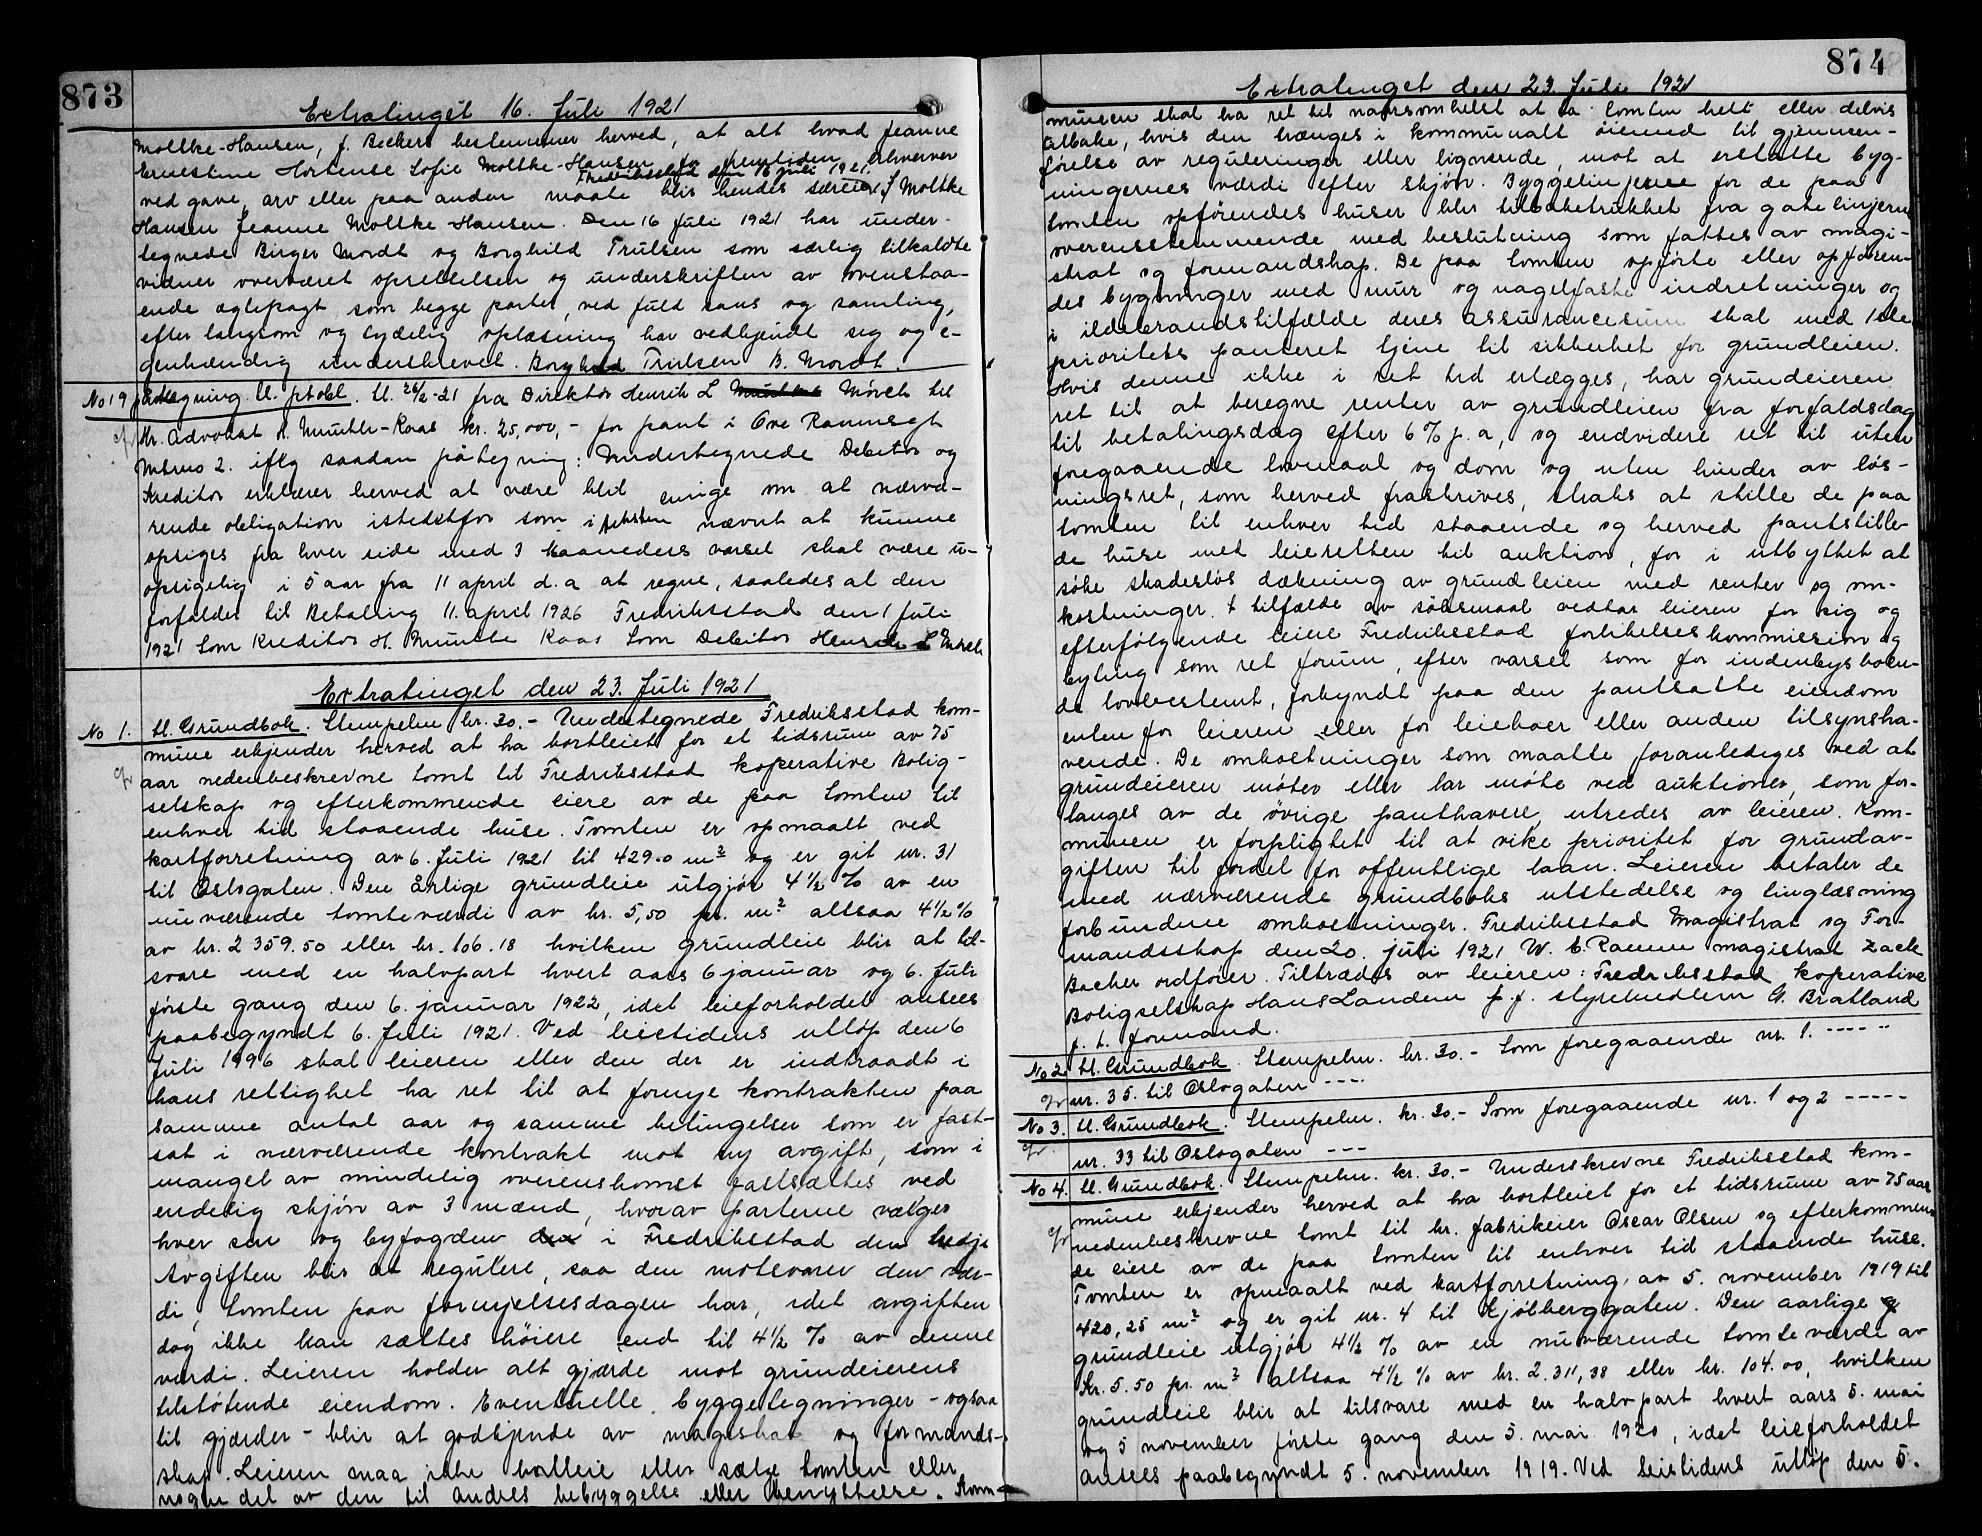 873
Extratinget 16. Juli 1921
Moltke-Hansen, f. Beckers bestemmer herved, at alt hvad Jeanne
Ernestine Hortense Sofie Moltke-Hansen for fremtiden erhverver
Fredriksstad den 16 juli 1921.
ved gave, arv eller paa anden maate blir hendes særeie. J Moltke
Hansen Jeanne Moltke Hansen. Den 16 Juli 1921 har under-
tegnede Birger Mordt og Borghild Trulsen som særlig tilkaldte
vidner overværet oprettelsen og underskriften av ovenstaa-
ende egtepagt, som begge parter, ved fuld sans og samling,
efter langsom og tydelig oplæsning har vedkjendt sig og e-
genhændig underskrevet. Borghild Trulsen B. Mordt.
No 19 påtegning tl. ptobl. tl. 26/2-21 fra Direktør Henrik L Mørch til
Hr. Advokat H. Munthe-Kaas kr. 25,000,- for pant i Ove Rammsgt
2. iflg saadan påtegning: Undertegnede Debitor og
Kreditor erklærer herved at være blit enige om at nærvæ-
rende obligation istedetfor som i teksten nævnt at kunne
opsiges fra hver side med 3 maaneders varsel skal være u-
opsigelig i 5 aar fra 11 april d.a at regne, saaledes at den
forfalder til Betaling 11. april 1926 Fredriksstad den 1 juli
1921 Som Kreditor H. Munthe Kaas Som Debitor Henrik L Mørch
Extratinget den 23. Juli 1921
No 1. tl. Grundbok. Stempelm. kr. 30.- Undertegnede Fredriksstad kom-
mune erkjender herved at ha bortleiet for et tidsrum av 75
aar nedenbeskrevne tomt til Fredriksstad koperative Bolig-
selskap og efterkommende eiere av de paa tomten til
enhver tid staaende huse. Tomten er opmaalt ved
kartforretning av 6. Juli 1921 til 429.0 m² og er git nr. 31
til Oslogaten. Den årlige grundleie utgjør 4½ % av en
nuværende tomteværdi av kr. 5,50 pr. m² altsaa 4½ %
av kr. 2 359.50 eller kr. 106.18 hvilken grundleie blir at til-
svare med en halvpart hvert aars 6 januar og 6. Juli
første gang den 6. januar 1922, idet leieforholdet ansees
paabegyndt 6. Juli 1921. Ved leietidens utløp den 6
Juli 1996 skal leieren eller den der er indtraadt i
hans rettighet ha ret til at fornye kontrakten paa
samme antal aar og samme betingelser som er fast-
sat i nærværende kontrakt mot ny avgift, som i
mangel av mindelig overenskomst fastsættes ved
endelig skjøn av 3 mænd, hvorav parterne vælges
hver sin og byfogden i Fredriksstad den tredje
Avgiften blir at regulere, saa den motsvarer den vær-
di, tomten paa fornyelsesdagen har, idet avgiften
dog ikke kan sættes høiere end til 4½ % av denne
værdi. Leieren holder alt gjærde mot grundeierens
tilstøtende eiendom. Eventuelle byggetegninger - ogsaa
til gjærder - blir at godkjende av magistrat og formands-
skap. Leieren maa ikke bortleie eller sælge tomten eller
nogen del av den til andres bebyggelse eller benyttelse. Kom-
874
Extratinget den 23. Juli 1921
munen skal ha ret til naarsomhelst at ta tomten helt eller delvis
tilbake, hvis den trænges i kommunalt øiemed til gjennem-
førelse av reguleringer eller lignende, mot at erstatte byg-
ningernes værdi efter skjøn. Byggelinjerne for de paa
tomten opførendes huser blir tilbaketrukket fra gatelinjerne
overensstemmende med beslutning som fattes av magi-
strat og formandskap. De paa tomten opførte eller opføren-
des bygninger med mur og nagelfaste indretninger og
i ildsbrandstilfælde deres assurancesum skal med 1ste
prioritets panteret tjene til sikkerhet for grundleien.
Hvis denne ikke i ret tid erlægges, har grundeieren
ret til at beregne renter av grundleien fra forfaldsdag
til betalingsdag efter 6 % p.a, og endvidere ret til uten
foregaaende lovmaal og dom og uten hinder av løs-
ningsret, som herved fraskrives, straks at stille de paa
tomten til enhver tid staaende og herved pantstille-
de huse med leieretten til auktion, for i utbyttet at
søke skadesløs dækning av grundleien med renter og om-
kostninger. I tilfælde av søksmaal vedtar leieren for sig og
efterfølgende leiere Fredriksstad forlikelseskommission og
byting som ret forum, efter varsel som for indenbysboen-
de lovbestemt, forkyndt paa den pantsatte eiendom
enten for leieren eller for leieboer eller anden tilsynsha-
vende. De omkostninger som maatte foranlediges ved at
grundeieren møter eller lar møte ved auktioner, som for-
langes av de øvrige panthavere utredes av leieren. Kom-
munen er forpligtet til at vike prioritet for grundav-
giften til fordel for offentlige laan. Leieren betaler de
med nærværende grundboks utstedelse og tinglæsning
forbundne omkostninger. Fredriksstad Magistrat og For-
mandsskap den 20. juli 1921 W. C. Ramm magistrat Zack
Backer ordfører. Tiltrædes av leieren: Fredriksstad koperative
Boligselskap Hans Landem p.t. styremedlem G. Bratland
p.t. formand.
No 2 tl. Grundbok. Stempelm. kr. 30.- Som foregaaende nr. 1. -----
nr. 35. til Oslogaten ----
No 3. tl. Grundbok. Stempelm. kr. 30.- Som foregaaende nr. 1 og 2 -----
nr. 33 til Oslogaten ---
No 4. tl. Grundbok. Stempelm. kr. 30.- Underskrevne Fredriksstad kom-
mune erkjender herved at ha bortleiet for et tidsrum av 75 aar
nedenbeskrevne tomt til hr. fabrikeier Oscar Olsen og efterkommen-
de eiere av de paa tomten til enhver tid staaende huse.
Tomten er opmaalt ved kartforretning av 5. november 1919 til
420,25 m² og er git nr. 4 til Kjølberggaten. Den aarlige
grundleie utgjør 4½ % av en nuværende tomteværdi av
Kr. 5.50 pr. m² altsaa 4½ % av kr. 2.311,38 eller kr. 104.00, hvilken
grundleie blir at tilsvare med en halvpart hvert aars 5. mai
og 5 november første gang den 5. mai 1920, idet leieforholdet
ansees paabegyndt 5. november 1919. Ved leietidens utløp den 5.